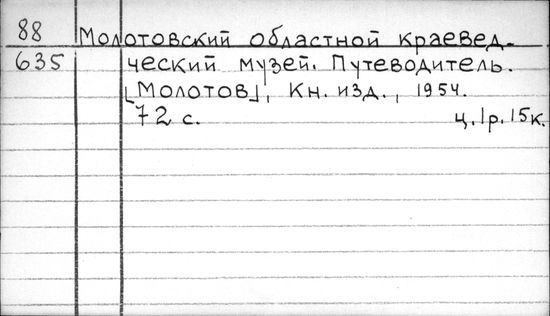 88 Молотовский областной краевед-
635 ческий музей. Путеводитель.
[Молотов], Кн. изд., 1954.
72 с. ц. 1р. 15к.